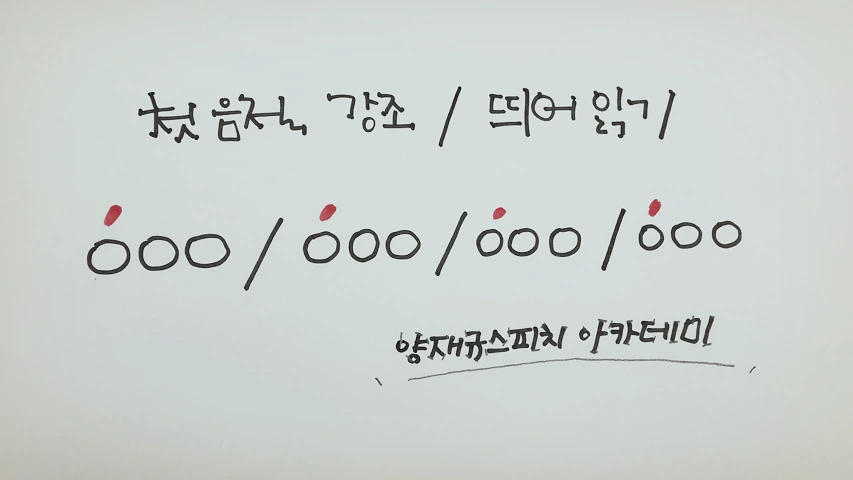 첫 음절 강조 / 띄어 읽기
OOO / OOO / OOO / OOO
양재규스피치 아카데미